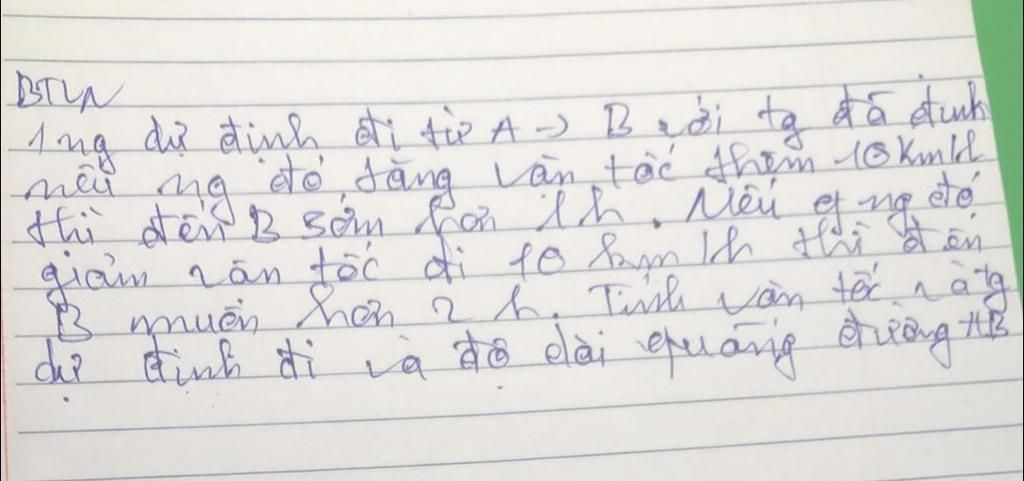 BTVN
1 ng dự định đi từ A -> B với tg đã định
nếu ng đó tăng vân tốc thêm 10 Km/h
thì đến B sớm hơn 1h. Nếu ng đó
giảm vân tốc đi 10 km/h thì đến
B muộn hơn 2 h. Tính vân tốc và tg
dự định đi và độ dài quãng đường AB